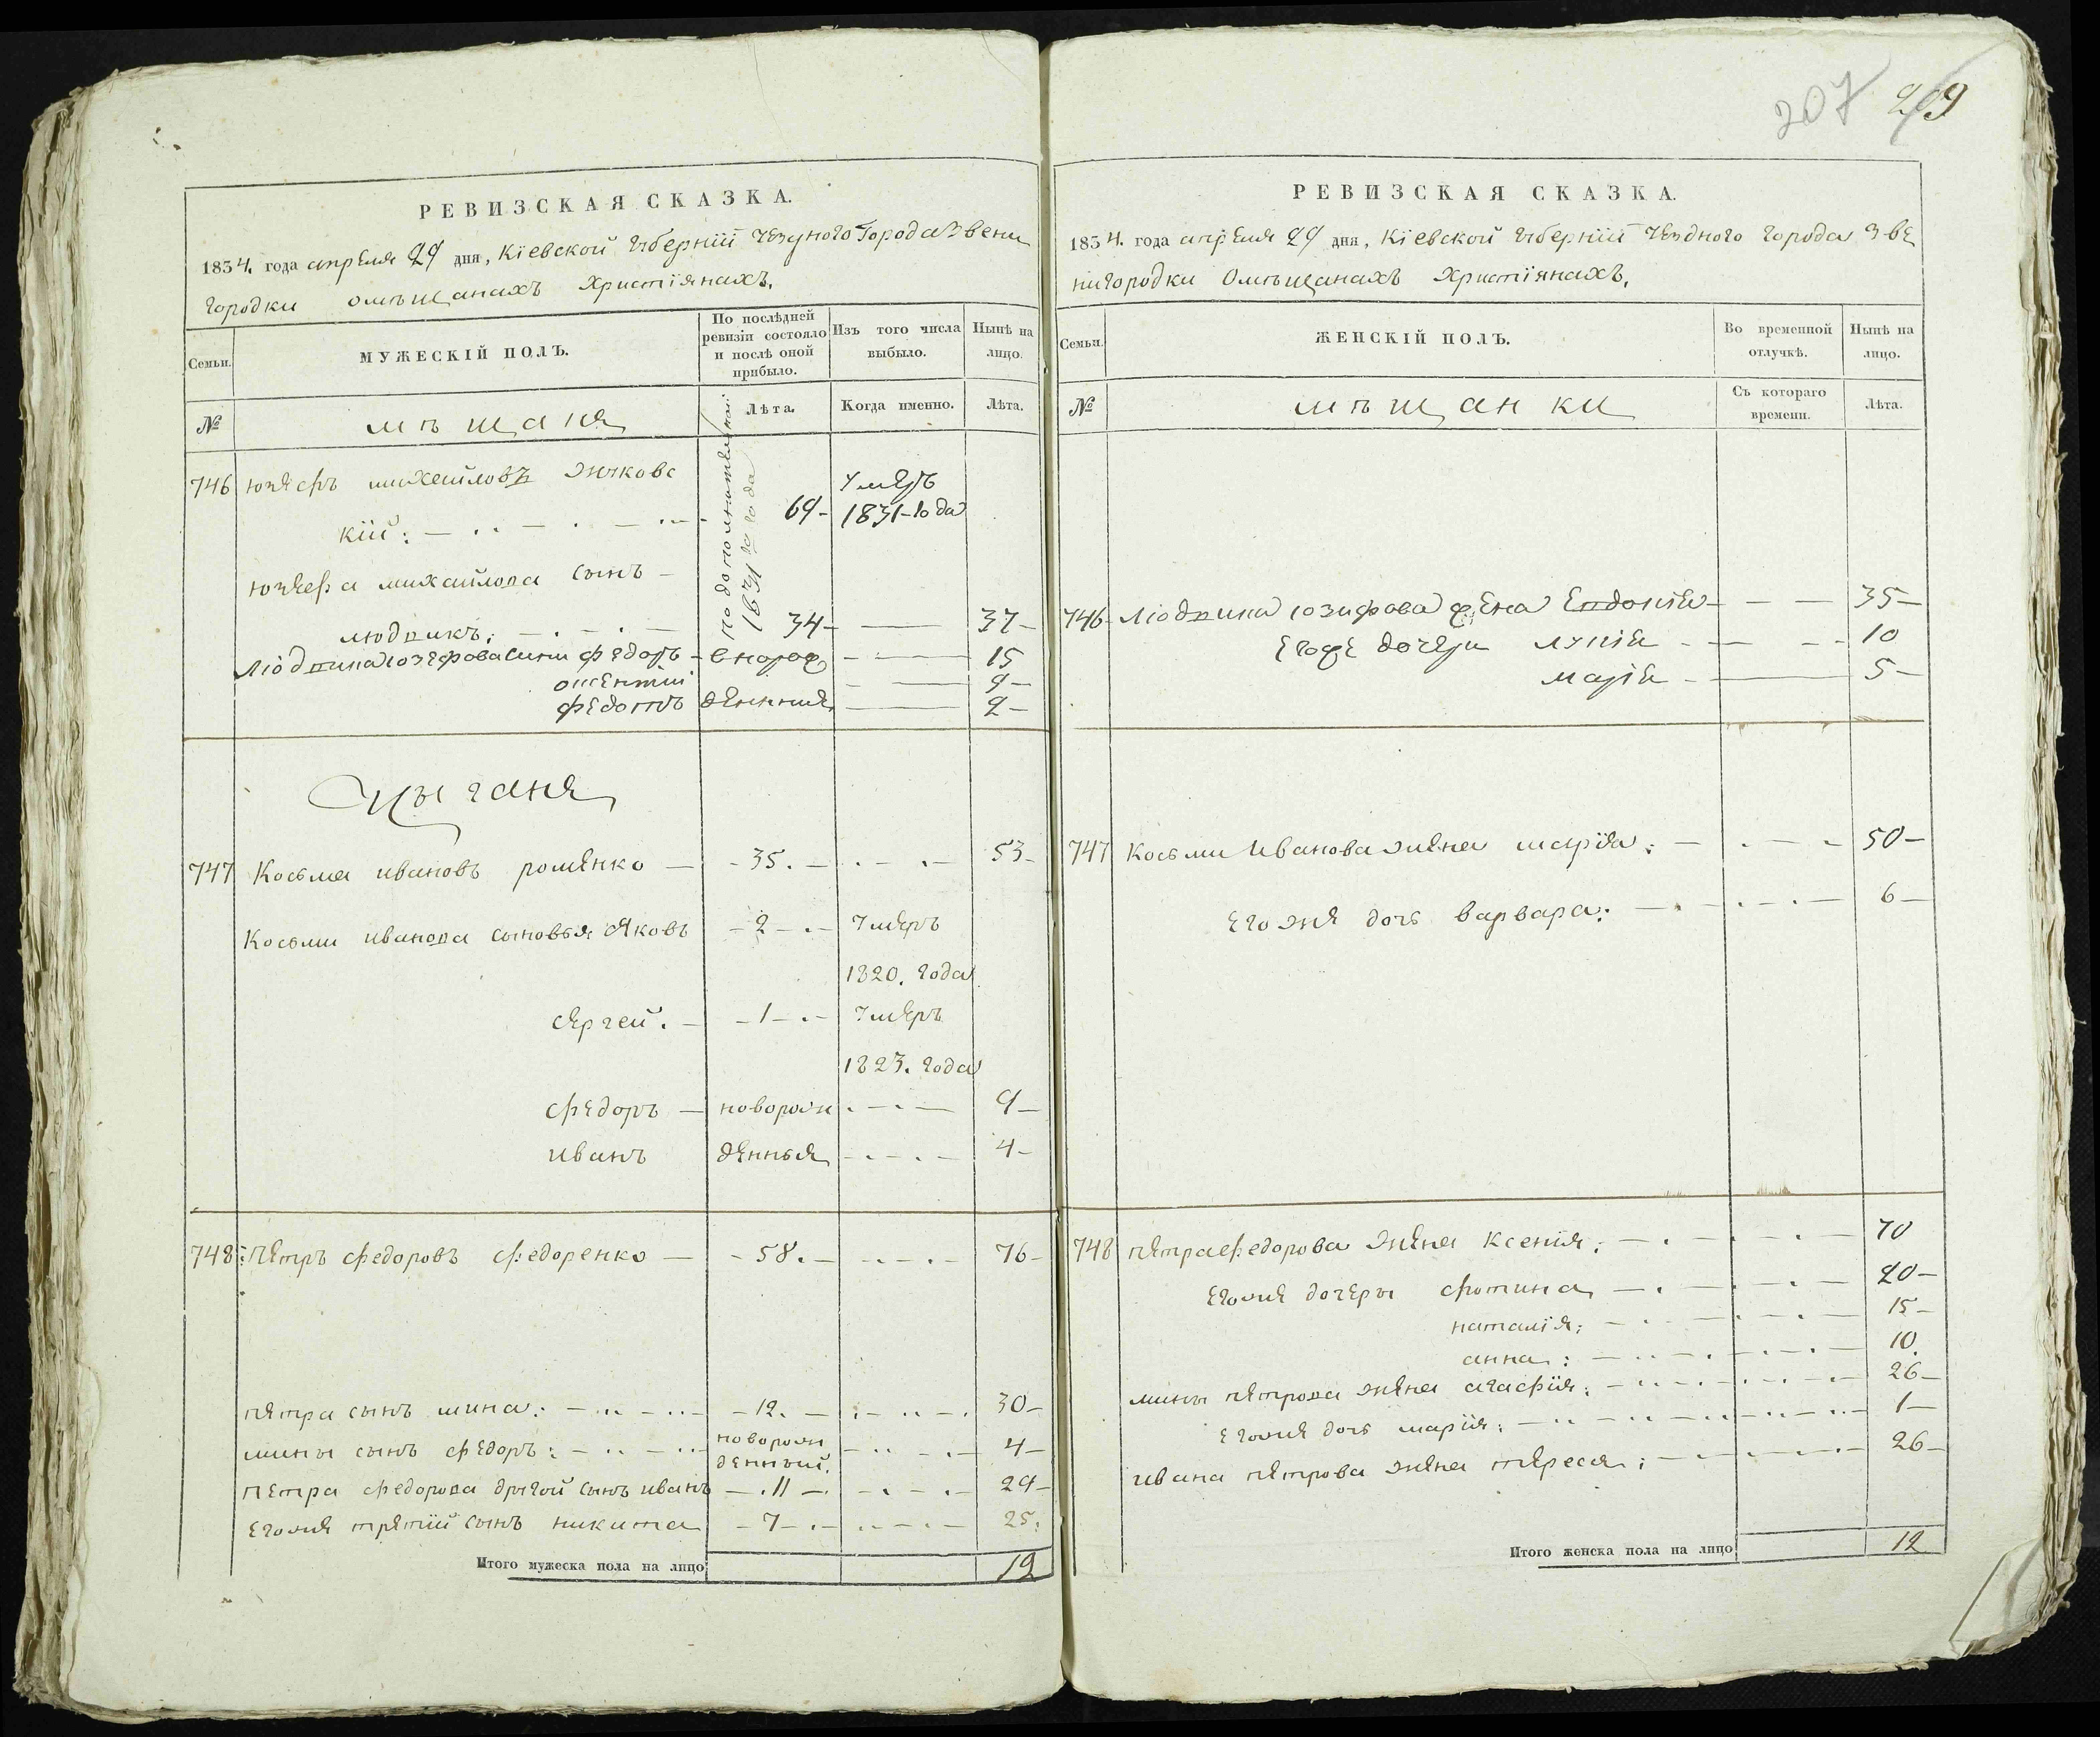 207 209
РЕВИЗСКАЯ СКАЗКА.
1834. года апреля 29 дня, Кіевской губерніи уезного города Звени
городки омѣщанахъ христіянахъ.
Семьи.
МУЖЕСКІЙ ПОЛЪ.
По послѣдней ревизіи состояло и послѣ оной прибыло.
Изъ того числа выбыло.
Нынѣ на лицо.
№
мѣщаня
Лѣта.
Когда именно.
Лѣта.
по дополнителной 1831 года
746 юзефъ михайловъ
кій: 69 умеръ 1831 года
юзефа михайлова сынъ
людвикъ: 34 37
людвика юзефова сини федоръ вновро 15
9
федотъ денния 2
цыганя
747 Косьма ивановъ роменко 35. 53
Косьми иванова сыновья яковъ 2 умеръ
1820. года
сергей. 1 умеръ
1823. года
федоръ новорож 9
иванъ денныя 4
748 петръ федоровъ федоренко 58. 76
петра сынъ мина: 12. 30
мины сынъ федоръ: новорож денный. 4
петра федорова другой сынъ иванъ 11 29
егоже третій сынъ никита 7 25.
Итого мужеска пола на лицо 12
РЕВИЗСКАЯ СКАЗКА.
1834. года апреля 29 дня, Кіевской губерніи уездного города Зве
нигородки омѣщанахъ христіянахъ.
Семьи.
ЖЕНСКІЙ ПОЛЪ.
Во временной отлучкѣ.
Нынѣ на лицо.
№
мѣщанки
Съ котораго времени.
Лѣта.
746 людвика юзифова жена Евдокія 35
Егоже дочери 10
марія 5
747 Косьми Иванова жена марія: 50
Егоже дочь варвара: 6
748 петра федорова жена ксенія: 70
Егоже дочеры фотина 20
наталія: 15
анна: 10.
мины петрова жена агафія: 26
Егоже дочь марія: 1
ивана петрова жена тереса: 26
Итого женска пола на лицо 12